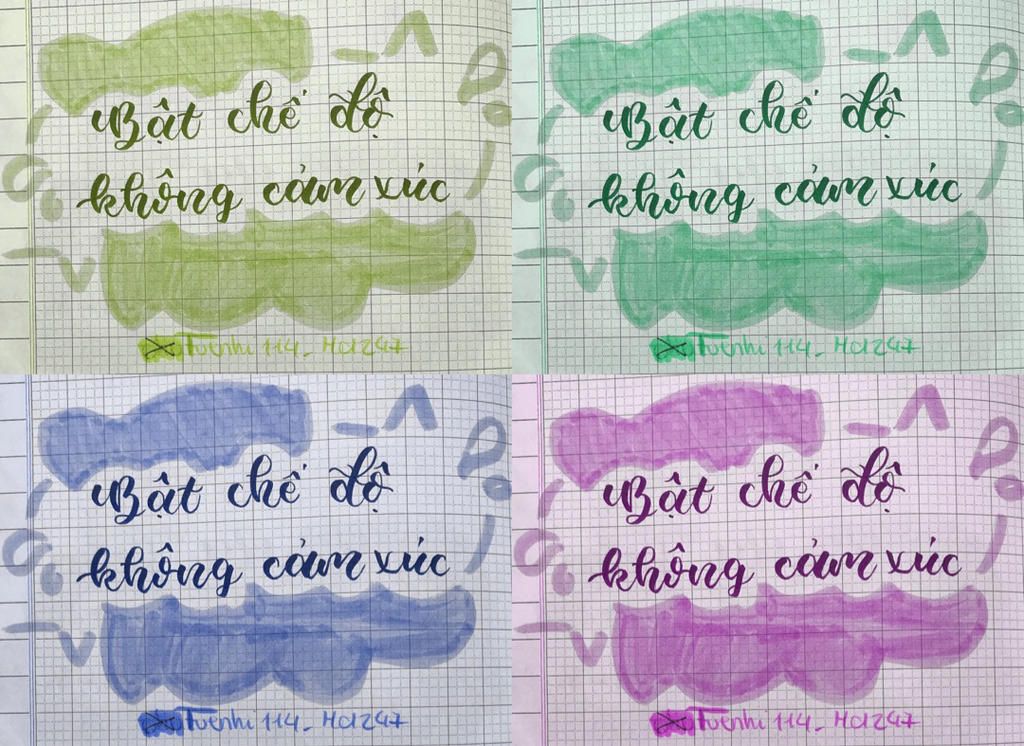 Bật chế độ
không cảm xúc
Tuenhi 114_ Hd247
Bật chế độ
không cảm xúc
Tuenhi 114_ Hd247
Bật chế độ
không cảm xúc
Tuenhi 114_ Hd247
Bật chế độ
không cảm xúc
Tuenhi 114_ Hd247